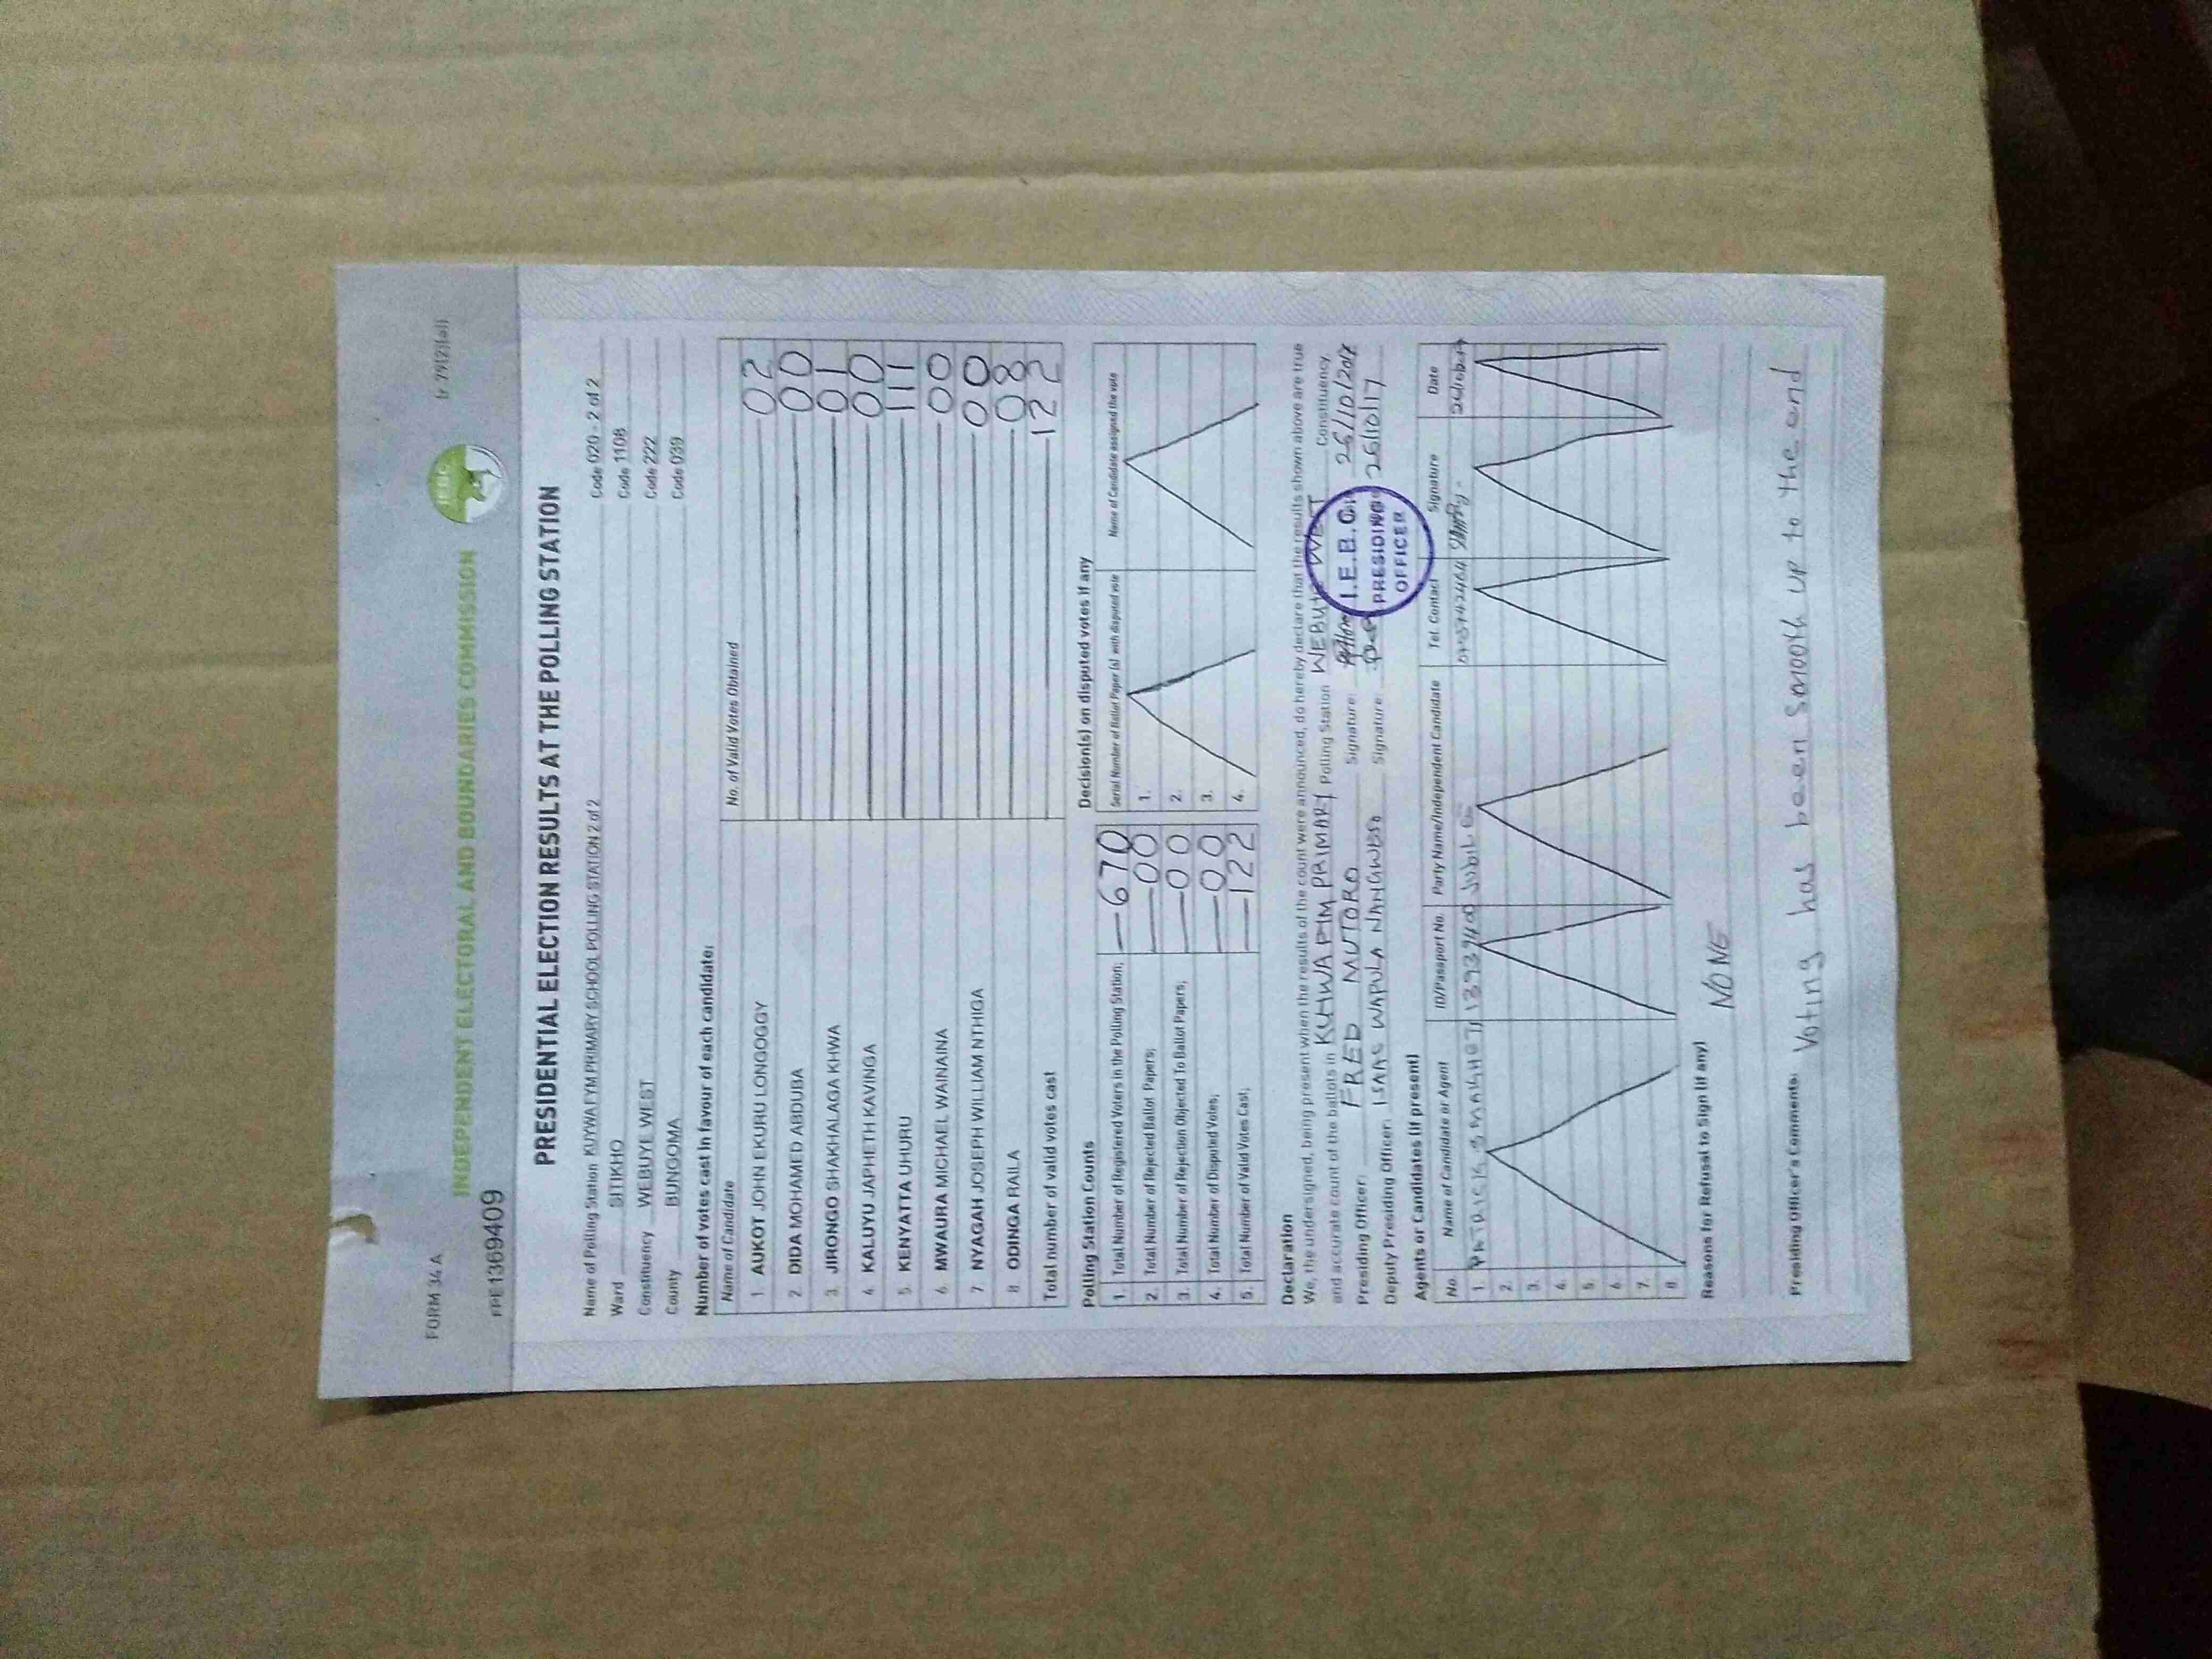 FORM 34 A
(r 79(2)(a))
INDEPENDENT ELECTORAL AND BOUNDARIES COMMISSION
IEBC
FPE1369409
PRESIDENTIAL ELECTION RESULTS AT THE POLLING STATION
Name of Polling Station KUYWA FYM PRIMARY SCHOOL POLLING STATION 2 of 2 Code 020 - 2 of 2
Ward SITIKHO Code 1108
Constituency WEBUYE WEST Code 222
County BUNGOMA Code 039
Number of votes cast in favour of each candidate:
Name of Candidate No. of Valid Votes Obtained
1. AUKOT JOHN EKURU LONGOGGY 02
2. DIDA MOHAMED ABDUBA 00
3. JIRONGO SHAKHALAGA KHWA 01
4. KALUYU JAPHETH KAVINGA 00
5. KENYATTA UHURU 111
6. MWAURA MICHAEL WAINAINA 00
7 NYAGAH JOSEPH WILLIAM NTHIGA 00
8 ODINGA RAILA 08
Total number of valid votes cast 122
Polling Station Counts
1. Total Number of Registered Voters in the Polling Station; 670
2. Total Number of Rejected Ballot Papers; 00
3. Total Number of Rejection Objected To Ballot Papers; 00
4. Total Number of Disputed Votes; 00
5. Total Number of Valid Votes Cast; 122
Decision(s) on disputed votes if any
Serial Number of Ballot Paper (s) with disputed vote Name of Candidate assigned the vote
1.
2.
3.
4.
Declaration
We, the undersigned, being present when the results of the count were announced, do hereby declare that the results shown above are true
and accurate count of the ballots in PRIMARY Polling Station WEBUYE WEST Constituency.
Presiding Officer: FRED MUTORO Signature: 26/10/2017
Deputy Presiding Officer: ISAAC WAPULA Signature: 26/10/17
I.E.B.C.
PRESIDING
OFFICER
Agents or Candidates (if present)
No. Name of Candidate or Agent ID/Passport No. Party Name/Independent Candidate Tel. Contact Signature Date
1. PATRICK Jubilee
2.
3.
4.
5.
6.
7.
8.
Reasons for Refusal to Sign (if any)
NONE
Presiding Officer's Comments: Voting has been smooth up to the end